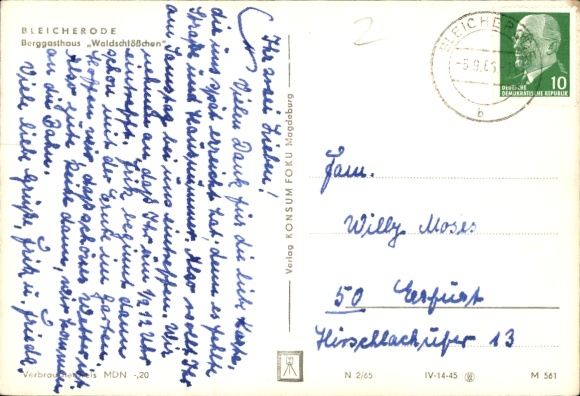 BLEICHERODE
Berggasthaus „Waldschlößchen"
Ihr zwei Lieben!
Vielen Dank für die liebe Karte,
die uns spät erreicht hat, denn es fehlte
Straße und Hausnummer. Also wollt Ihr
am Samstag bei uns eintreffen. Wir
nehmen an, daß Ihr um 1/2 12 Uhr
eintrefft. Fritz beginnt dann
schon mit der Ernte im Garten.
Hoffen wir, daß schönes Wetter ist.
Also gute Reise dann, wir kommen
an die Bahn.
Viele liebe Grüße, Fritz u. Frieda.
Verbraucherpreis MDN -,20
Verlag KONSUM FOKU Magdeburg
BLEICHERODE
-5.9.65
b
10
DEUTSCHE
DEMOKRATISCHE REPUBLIK
2
Fam.
Willy Moses
50 Erfurt
Hirschlachufer 13
N 2/65
IV-14-45
M 561